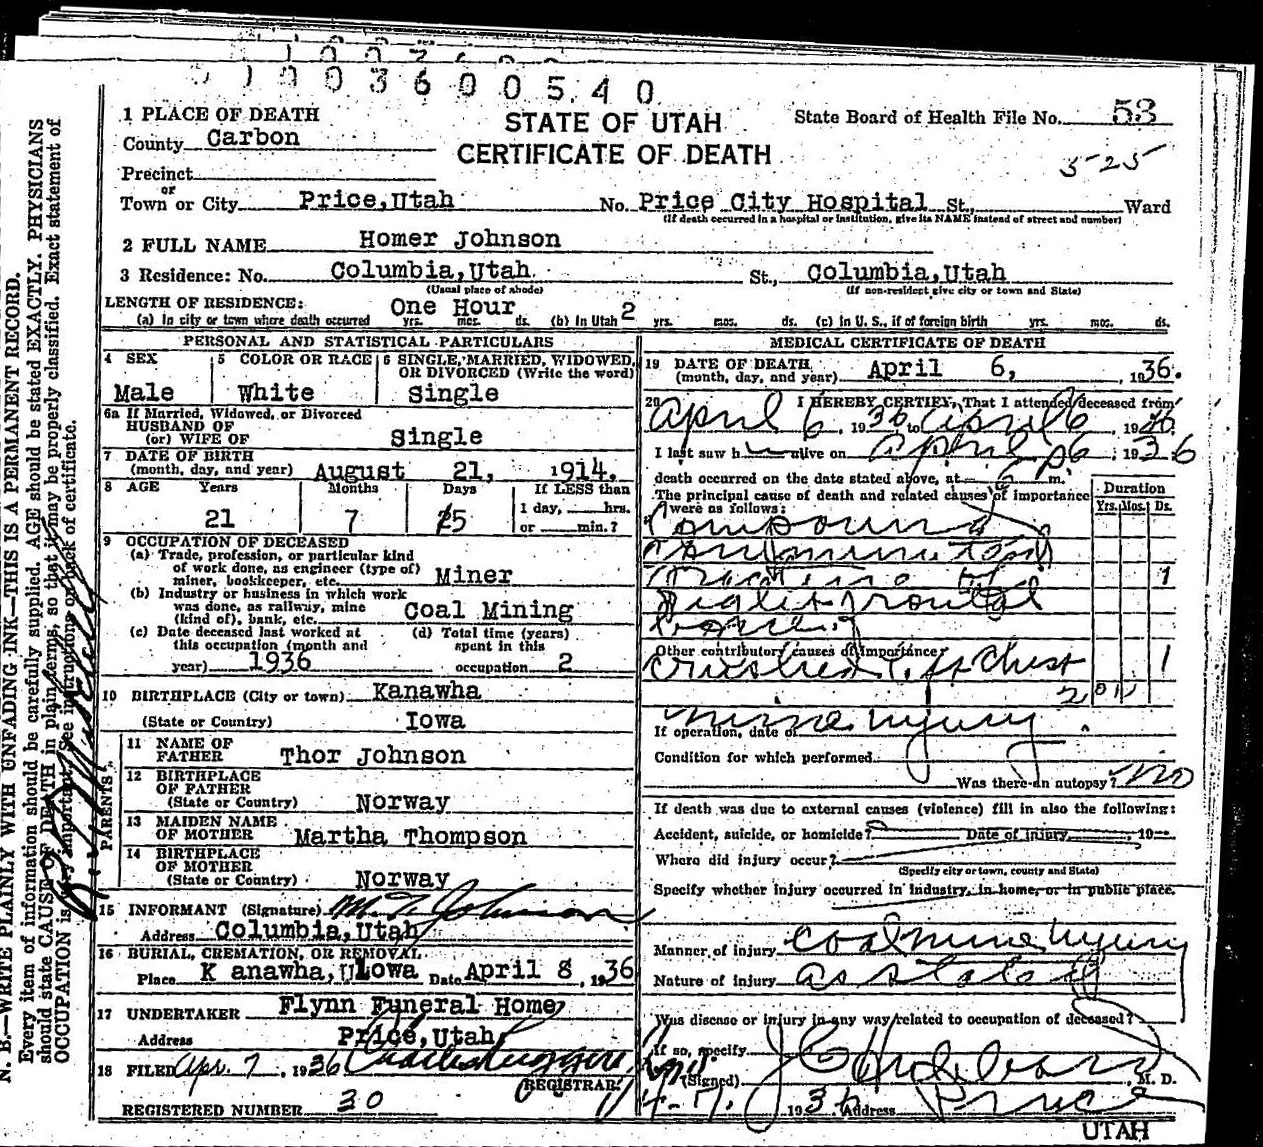 0 1 0 0 3 6 0 0 5 4 0
1 PLACE OF DEATH
County Carbon
Precinct
or
Town or City Price, Utah
STATE OF UTAH
CERTIFICATE OF DEATH
State Board of Health File No. 53
5-25
No. Price City Hospital St., Ward
(If death occurred in a hospital or institution, give its NAME instead of street and number)
2 FULL NAME Homer Johnson
3 Residence: No. Columbia, Utah St., Columbia, Utah
(Usual place of abode) (If non-resident give city or town and State)
LENGTH OF RESIDENCE: One Hour
(a) In city or town where death occurred yrs. mos. ds. (b) In Utah 2 yrs. mos. ds. (c) In U. S., if of foreign birth yrs. mos. ds.
PERSONAL AND STATISTICAL PARTICULARS
4 SEX
Male
5 COLOR OR RACE
White
6 SINGLE, MARRIED, WIDOWED, OR DIVORCED (Write the word)
Single
6a If Married, Widowed, or Divorced
HUSBAND OF
(or) WIFE OF Single
7 DATE OF BIRTH
(month, day, and year) August 21, 1914.
8 AGE Years Months Days If LESS than
21 7 15 1 day, hrs.
or min.?
9 OCCUPATION OF DECEASED
(a) Trade, profession, or particular kind
of work done, as engineer (type of)
miner, bookkeeper, etc. Miner
(b) Industry or business in which work
was done, as railway, mine
(kind of), bank, etc. Coal Mining
(c) Date deceased last worked at
this occupation (month and
year) 1936
(d) Total time (years)
spent in this
occupation 2
10 BIRTHPLACE (City or town) Kanawha
(State or Country) Iowa
PARENTS
11 NAME OF
FATHER Thor Johnson
12 BIRTHPLACE
OF FATHER
(State or Country) Norway
13 MAIDEN NAME
OF MOTHER Martha Thompson
14 BIRTHPLACE
OF MOTHER
(State or Country) Norway
15 INFORMANT (Signature) M. T. Johnson
Address Columbia, Utah
16 BURIAL, CREMATION, OR REMOVAL
Place K anawha, Iowa Date April 8, 1936
17 UNDERTAKER Flynn Funeral Home
Address Price, Utah
18 FILED Apr. 7, 1936
REGISTRAR
REGISTERED NUMBER 30
MEDICAL CERTIFICATE OF DEATH
19 DATE OF DEATH
(month, day, and year) April 6, 1936.
20 I HEREBY CERTIFY, That I attended deceased from
April 6, 1936 to April 6, 1936.
I last saw h alive on April 6, 1936
death occurred on the date stated above, at p m.
The principal cause of death and related causes of importance
were as follows:
Duration
Yrs. Mos. Ds.
Compound
Comminuted
Fracture of 1
Right frontal
bone
Other contributory causes of importance:
Crushed Chest 1
mine injury.
If operation, date of
Condition for which performed
Was there an autopsy? no
If death was due to external causes (violence) fill in also the following:
Accident, suicide, or homicide? Date of injury, 19
Where did injury occur?
(Specify city or town, county and State)
Specify whether injury occurred in industry, in home, or in public place.
Manner of injury coal mine injury
Nature of injury as stated
Was disease or injury in any way related to occupation of deceased?
If so, specify
(Signed) M. D.
4-7, 1936 Address Price
UTAH
N. B.—WRITE PLAINLY WITH UNFADING INK—THIS IS A PERMANENT RECORD.
Every item of information should be carefully supplied. AGE should be stated EXACTLY. PHYSICIANS
should state CAUSE OF DEATH in plain terms, so that it may be properly classified. Exact statement of
OCCUPATION is very important. See instructions on back of certificate.